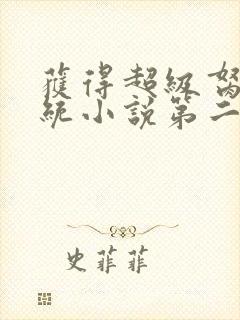 獲得超級
統小說第二
史菲菲